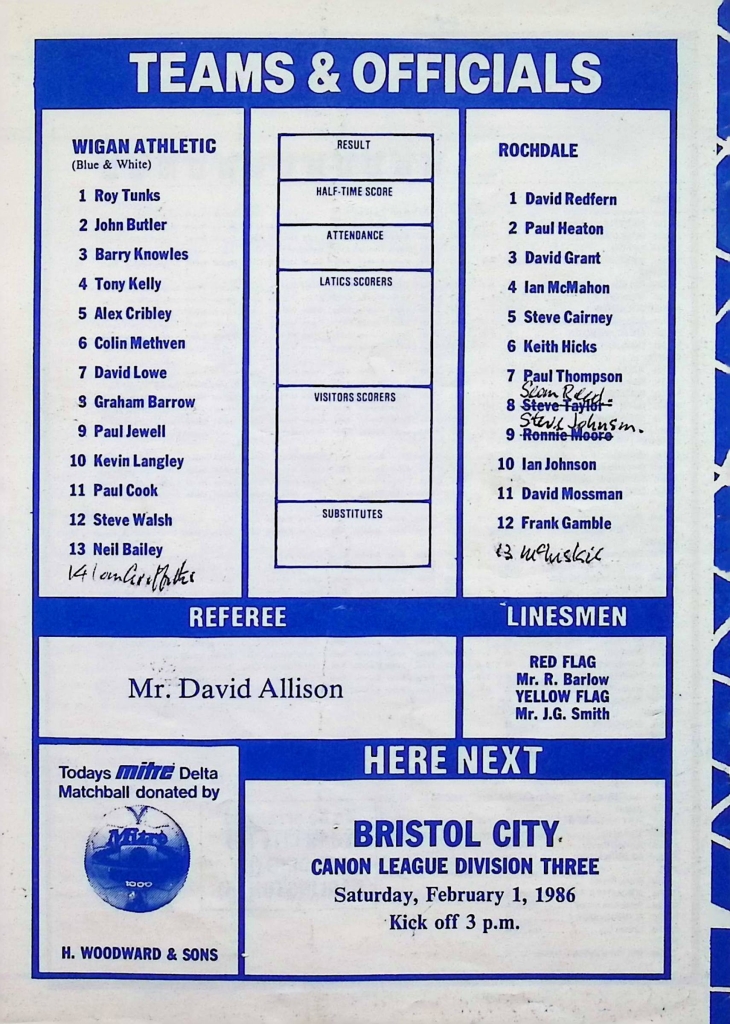 TEAMS & OFFICIALS
WIGAN ATHLETIC
(Blue & White)
1 Roy Tunks
2 John Butler
3 Barry Knowles
4 Tony Kelly
5 Alex Cribley
6 Colin Methven
7 David Lowe
8 Graham Barrow
9 Paul Jewell
10 Kevin Langley
11 Paul Cook
12 Steve Walsh
13 Neil Bailey
14 Ian Griffiths
RESULT
HALF-TIME SCORE
ATTENDANCE
LATICS SCORERS
VISITORS SCORERS
SUBSTITUTES
ROCHDALE
1 David Redfern
2 Paul Heaton
3 David Grant
4 Ian McMahon
5 Steve Cairney
6 Keith Hicks
7 Paul Thompson
Sean Reed.
8 Steve Taylor
Steve Johnson.
9 Ronnie Moore
10 Ian Johnson
11 David Mossman
12 Frank Gamble
13
REFEREE
Mr. David Allison
LINESMEN
RED FLAG
Mr. R. Barlow
YELLOW FLAG
Mr. J.G. Smith
Todays mitre Delta
Matchball donated by
Mitre
1000
H. WOODWARD & SONS
HERE NEXT
BRISTOL CITY
CANON LEAGUE DIVISION THREE
Saturday, February 1, 1986
Kick off 3 p.m.